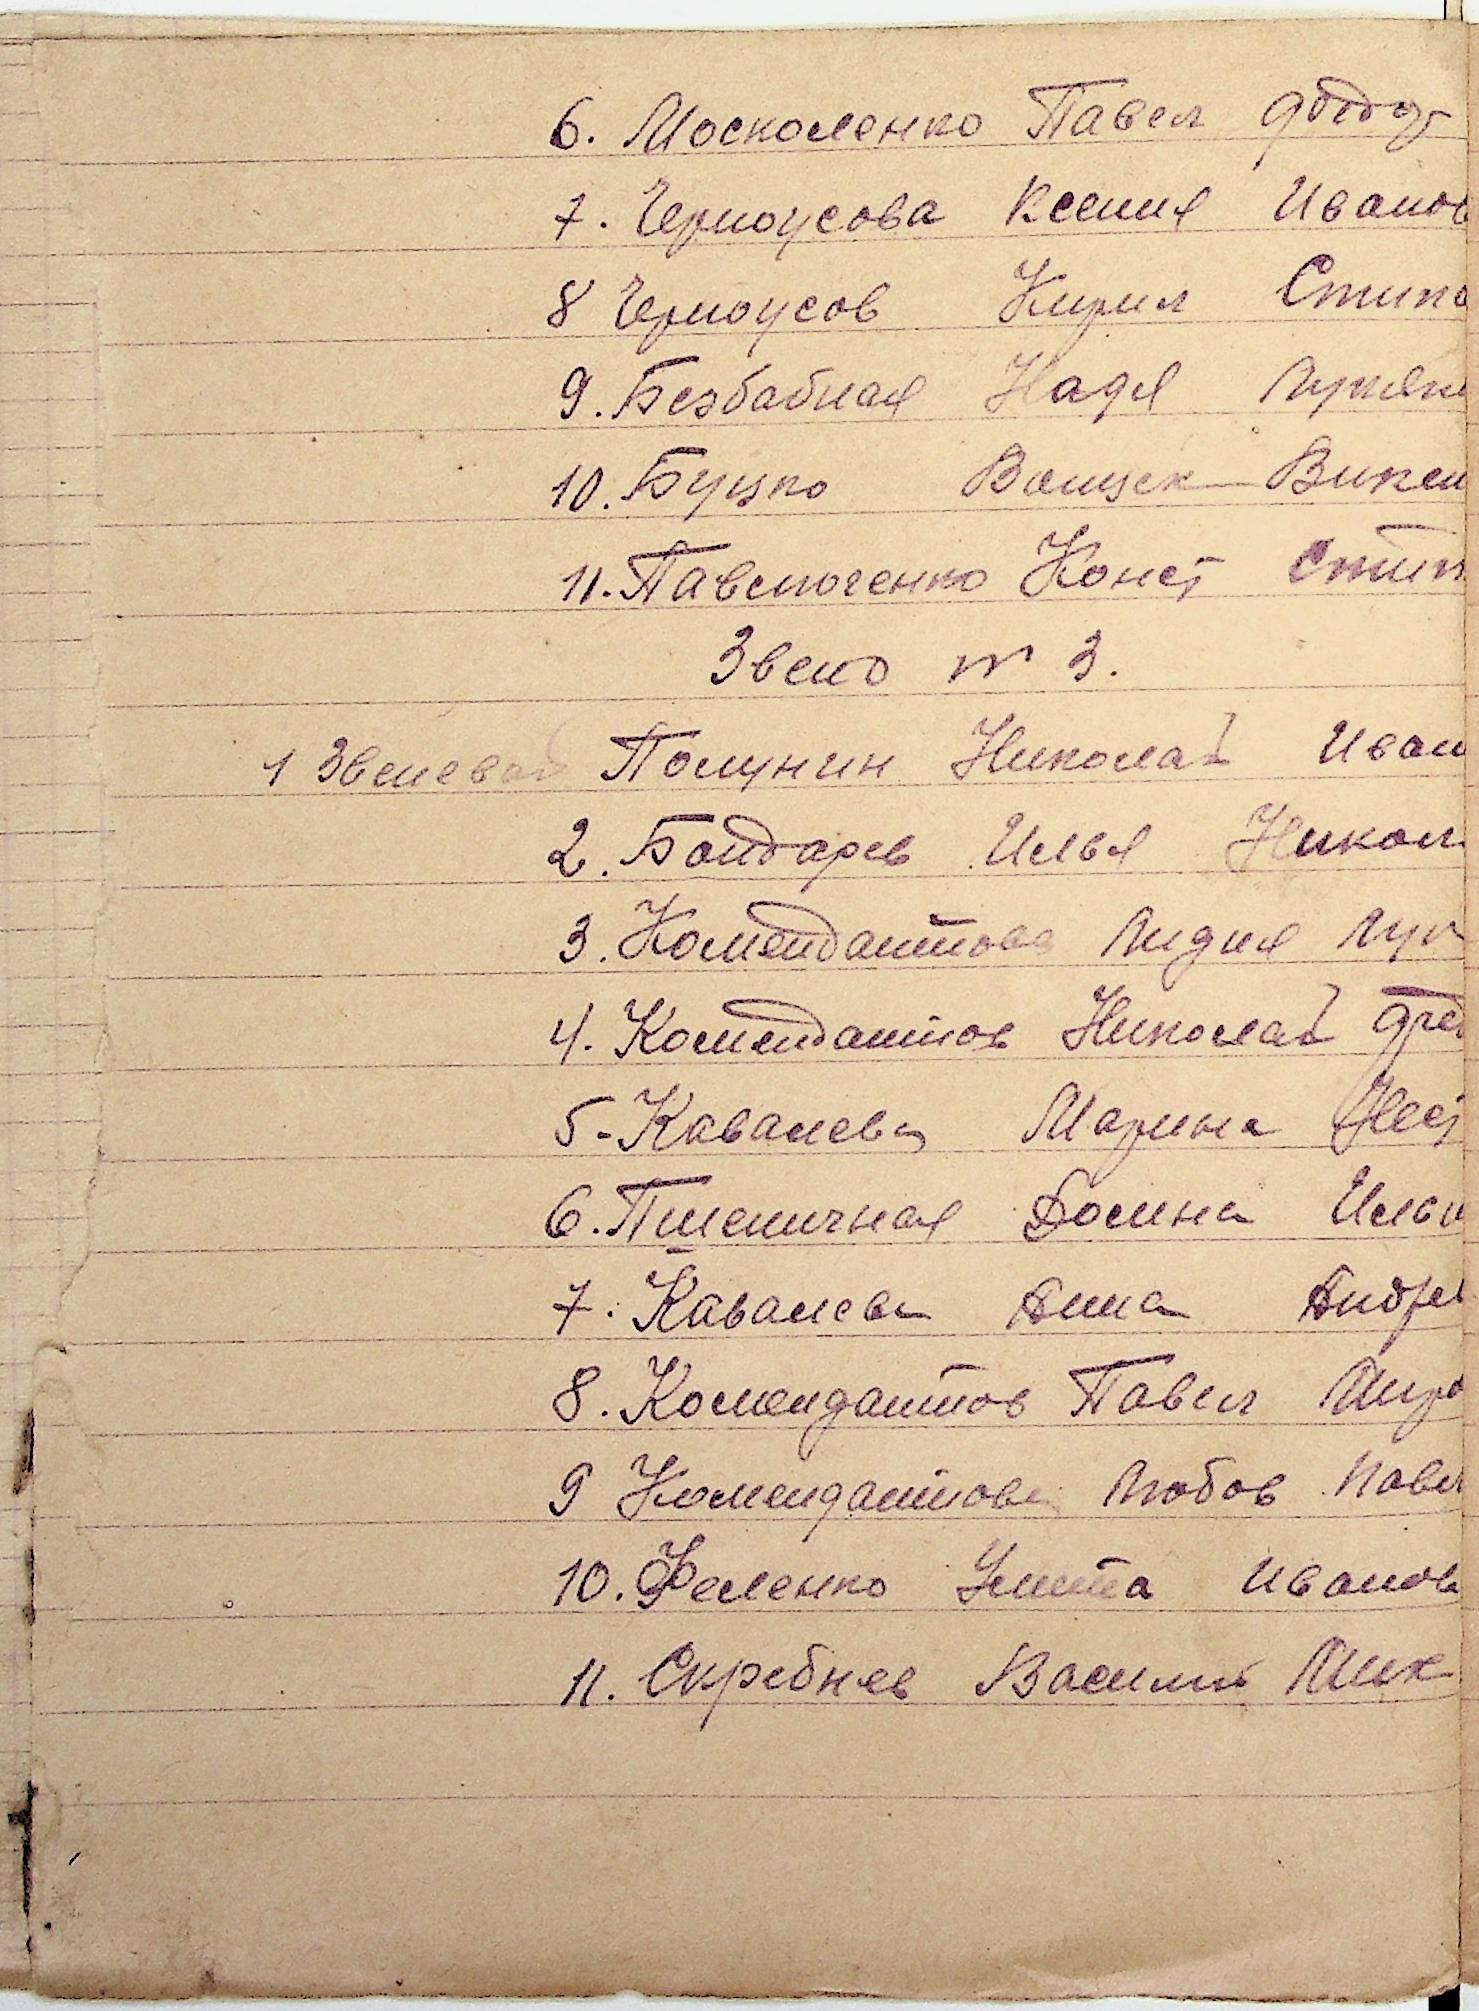 6. Москоленко Павел Федор
7. Черноусова Ксения Иванов
8 Черноусов Кирил Стипа
9. Безбабная Надя Лукян
10. Буцко Ванцек Викен
11. Павлюченко Конст Стип
Звено № 3.
1 Звеневой Полунин Николай Иван
2. Бондарев Илья Никол
3. Комендантова Лидия Лук
4. Комендантов Николай
5. Кавалева Марина Нест
6. Пшеничная Домна Ильи
7. Кавалева Анна Андре
8. Комендантов Павел Миро
9 Комендантова Любов Павл
10. Феленко Улита Иванов
11. Скребнев Василий Мих